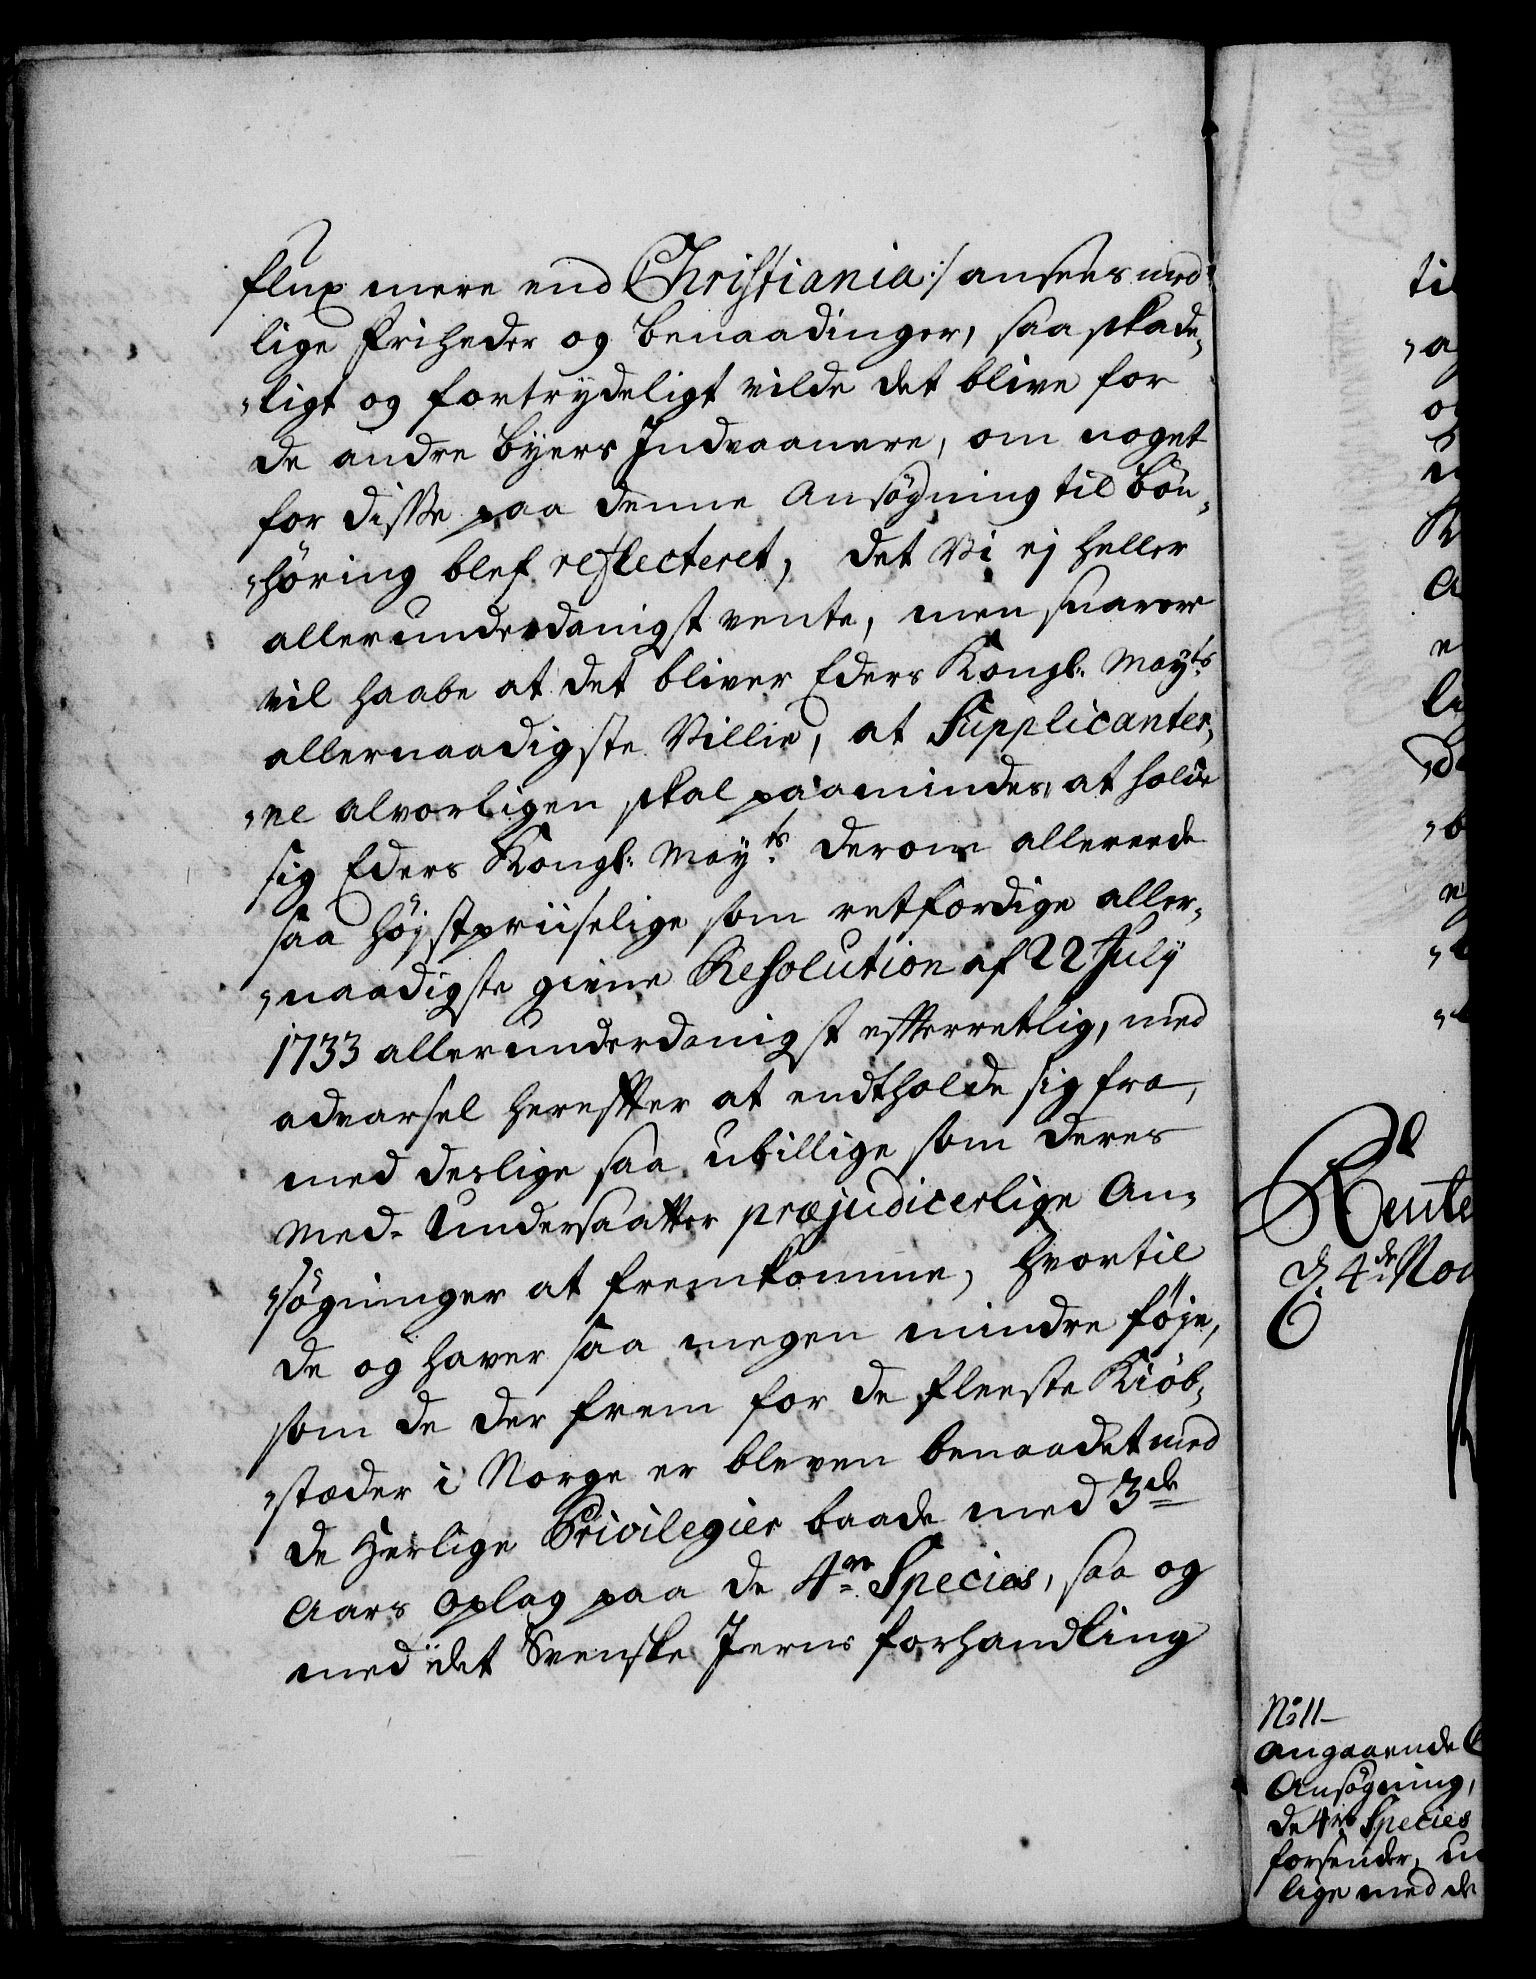 flux mere end Christiania :/ ansees med
lige Friheder og benaadinger, saa skade„
„ligt og fortrydeligt vilde det blive for
de andre byers Indvaanere, om noget
for disse paa denne Ansøgning til bøn„
„høring blef reflecteret, det Vi ej heller
allerunderdanigst vente, men snarere
vil haabe at det bliver Eders Kongl: Mayts
allernaadigste Villie, at Supplicanter„
„ne alvorligen skal paamindes, at holde
sig Eders Kongl: Mayts derom allereede
saa højstpriiselige som retfærdige aller„
„naadigste givne Resolution af 22 July
1733 allerunderdanigst efterretlig, med
advarsel herefter at endtholde sig fra,
med deslige saa ubillige som deres
Med-Undersaatter præjudicerlige An„
„søgninger at fremkomme, hvortil
de og haver saa megen mindre føje,
som de der frem for de fleeste Kiøb„
„stæder i Norge er bleven benaadet med
de Herlige Privilegier baade med 3de
Aars Oplag paa de 4re Species, saa og
med det Svenske Jerns forhandling
til
Rente
d. 4de Nov
No 11
Angaaende
Ansøgning,
de 4re Species
forsender,
lige med de